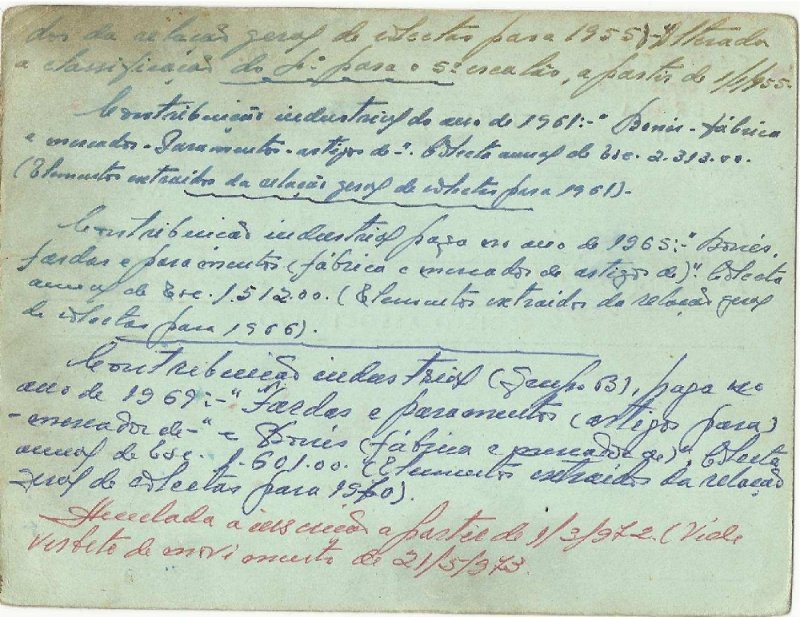 dos da relação geral de colectas para 1955)-" Alterada
a classificação do 4º para o 5º escalão, a partir de 1/1/955.
Contribuição industrial do ano de 1961:-" Bonés-fábrica
e mercador-Paramentos-artigos de-". Colecta anual de Esc. 2.313.00.
(Elementos extraidos da relação geral de colectas para 1961)-
Contribuição industrial paga no ano de 1965:-" Bonés,
fardas e paramentos (fábrica e mercador de artigos de)". Colecta
anual de Esc. 1.512.00. (Elementos extraidos da relação geral
de colectas para 1966).
Contribuição industrial (Grupo B), paga no
ano de 1969:-" Fardas e paramentos (artigos para)
-mercador de-" e Bonés (fábrica e mercador de)". Colecta
anual de Esc. 1.601.00. (Elementos extraidos da relação
geral de colectas para 1970).
Anulada a inscrição a partir de 1/3/972. (Vide
verbete de movimento de 21/5/973.